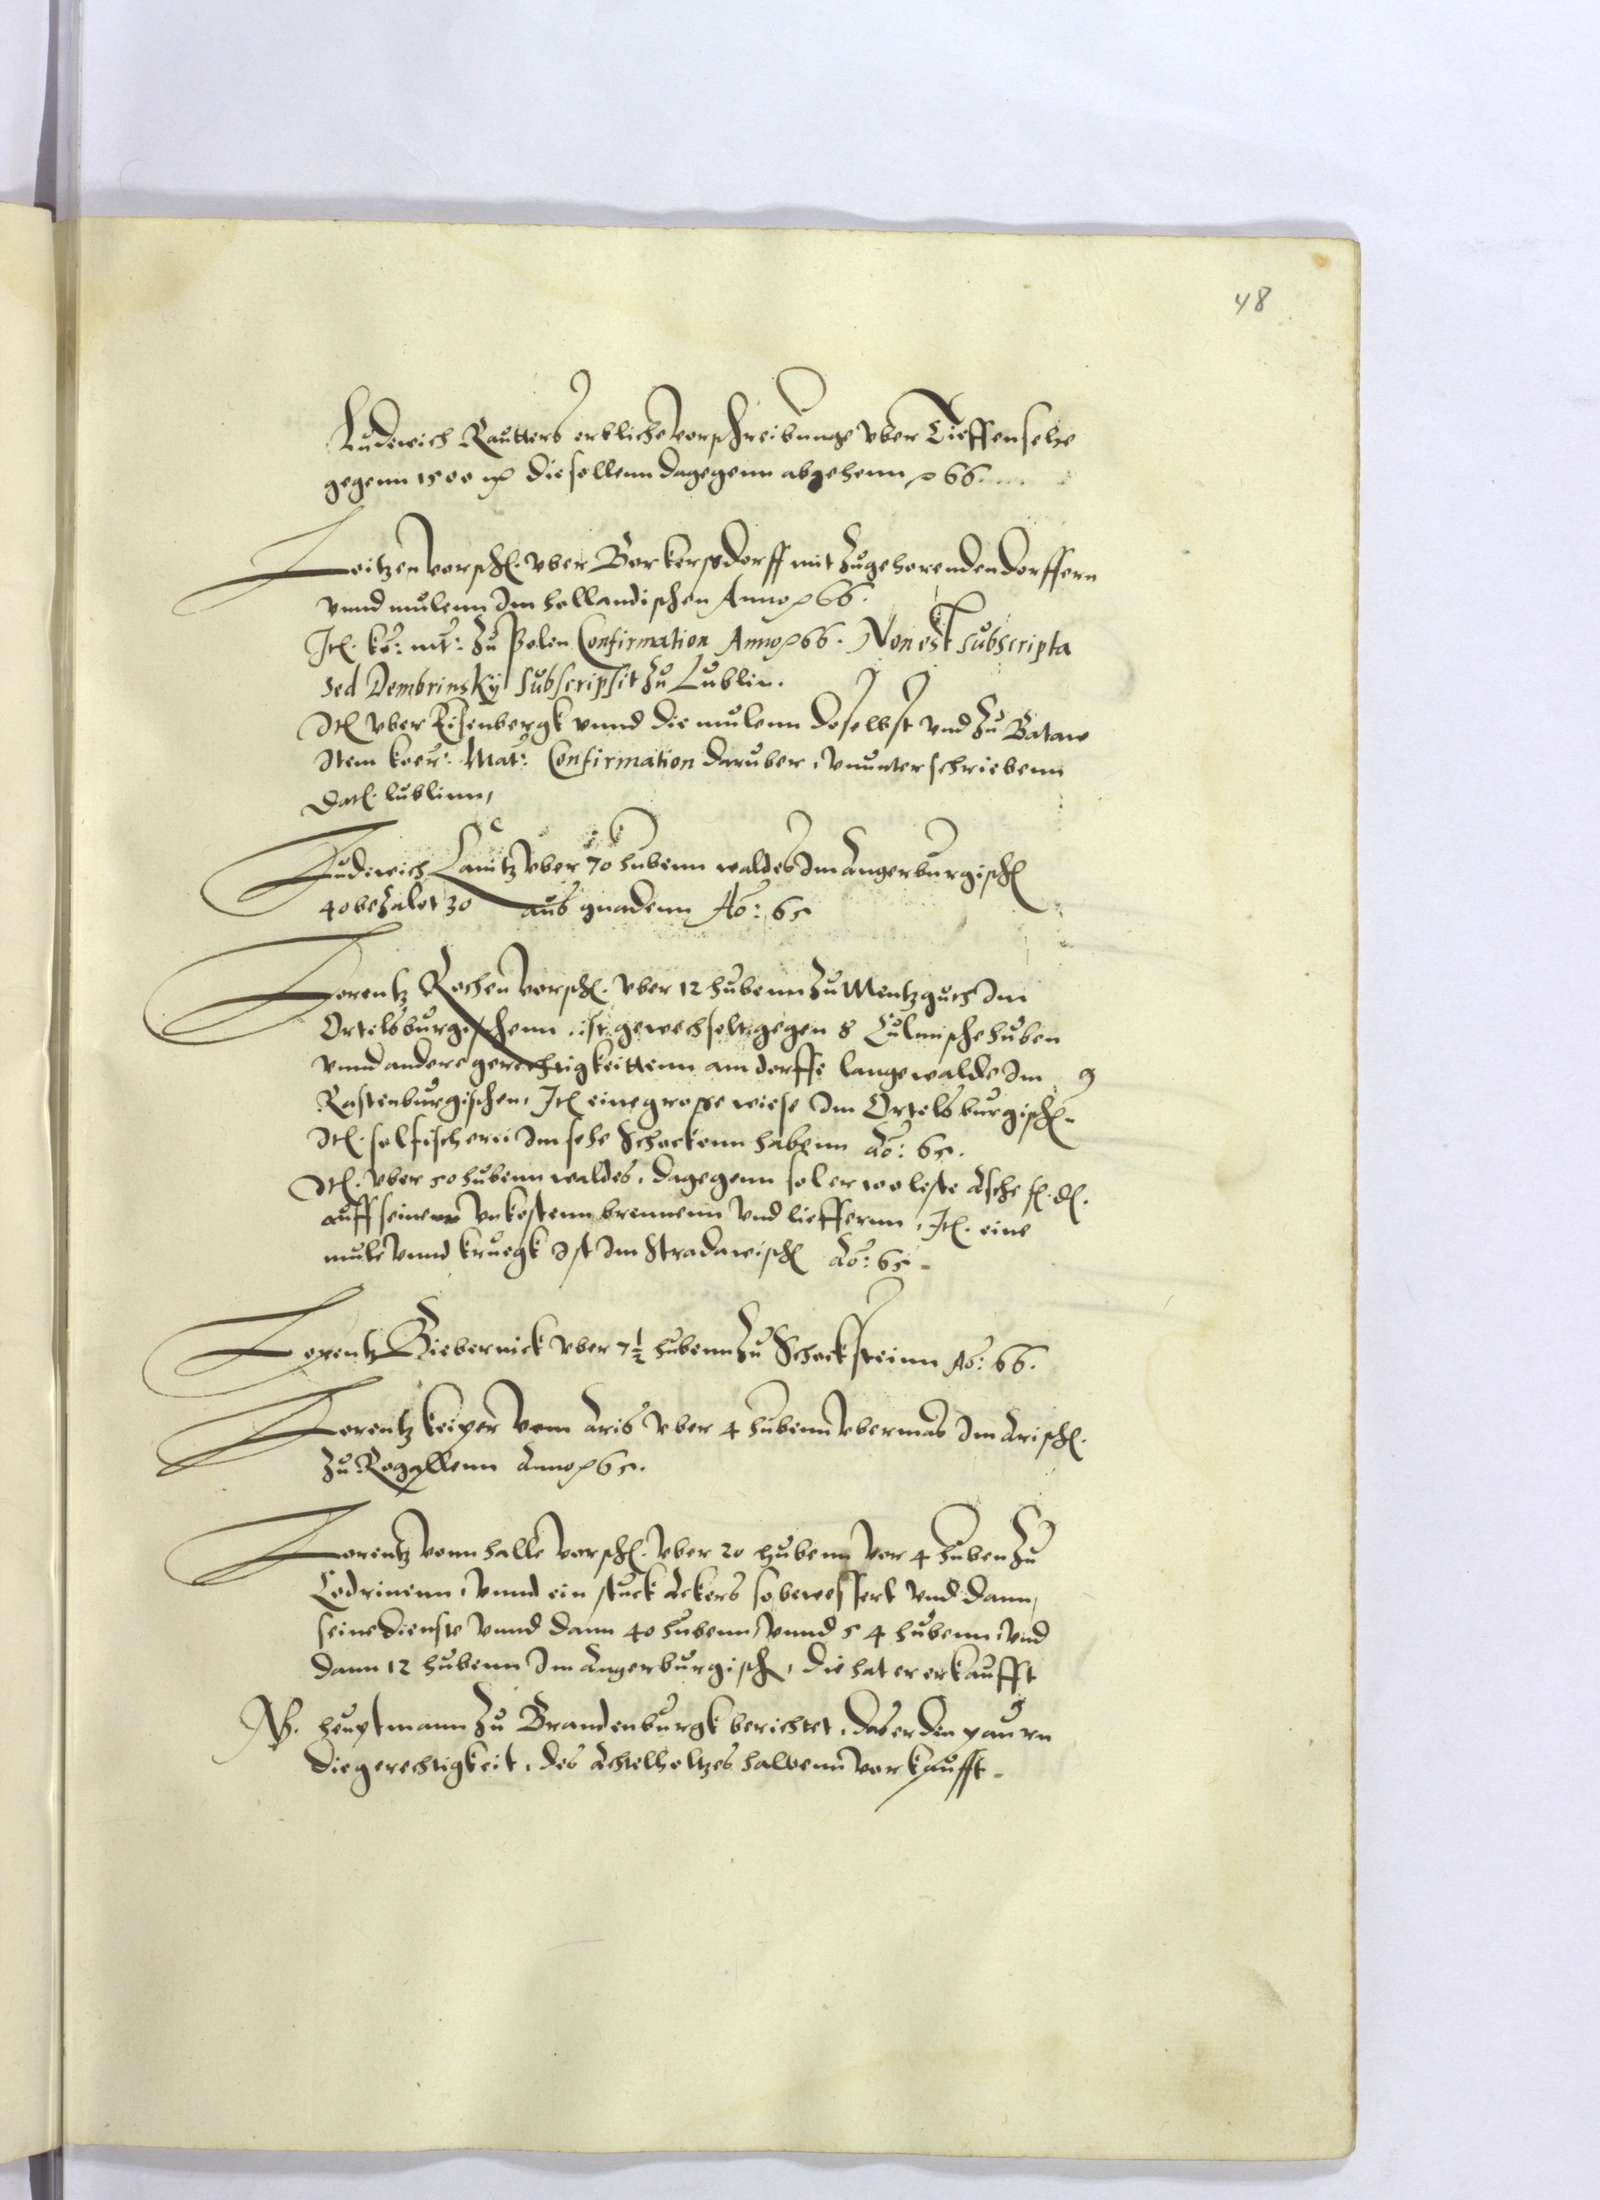 48
Ludewich Rautters erbliche vorschreibunge vber Tieffensehe
gegenn 1500 dieselbenn dagegenn abgehenn 66.
Loitzen vorsch. vber Borkersdorff mit zugehorenden dorffern
vnnd mulenn Im hollandischen Anno 66.
It. ko: mt: zu Polen Confirmation Anno 66. Non est subscripta
sed Dembrinsky subscripsit zu Lublin.
It. vber Eisenbergk vnnd die mulenn doselbst vnd zu Batawe
Item koer: Mat: Confirmation daruber, vnunterschriebenn
Dat. lublinn,
Ludewich Canitz vber 70 hubenn waldes Im Angerburgisch
40 bezalet 30 aus gnadenn Ao: 65
Lorentz Rochen vorsch. vber 12 hubenn zu Mentzguth Im
Ortelsburgischenn, ist gewechselt gegen 8 Culmische huben
vnnd andere gerechtigkeittenn am dorffe langewalde Im
Rastenburgischen, It. eine grosse wiese Im Ortelsburgisch.
It. sol fischerei Im sehe Schockenn habenn Ao: 65.
It. vber 50 hubenn waldes, dagegenn sol er 100 leste Asche
auff seinenn vnkostenn brennenn vnd lieffernn, It. eine
mule vnnd kruegk Ist Im Stradawisch Ao: 65.
Lorentz Biebernick vber 7 1/2 hubenn zu Schocksteinn Ao: 66.
Lorentz keiper vom Aris vber 4 hubenn vbermas Im Arisch.
zu Rogallenn Anno 65.
Lorentz vonn halle vorsch. vber 20 hubenn vor 4 huben zu
Codrinenn, vnnd ein stuck Ackers so bewessert vnd dann,
seine dienste vnnd dann 40 hubenn, vnnd 5 4 hubenn, vnd
dann 12 hubenn Im Angerburgisch, die hat er erkaufft
NB. heuptmann zu Brandenburgk berichtet, das er den paurn
die gerechtigkeit, des Achtelholtzes halbenn vorkaufft.